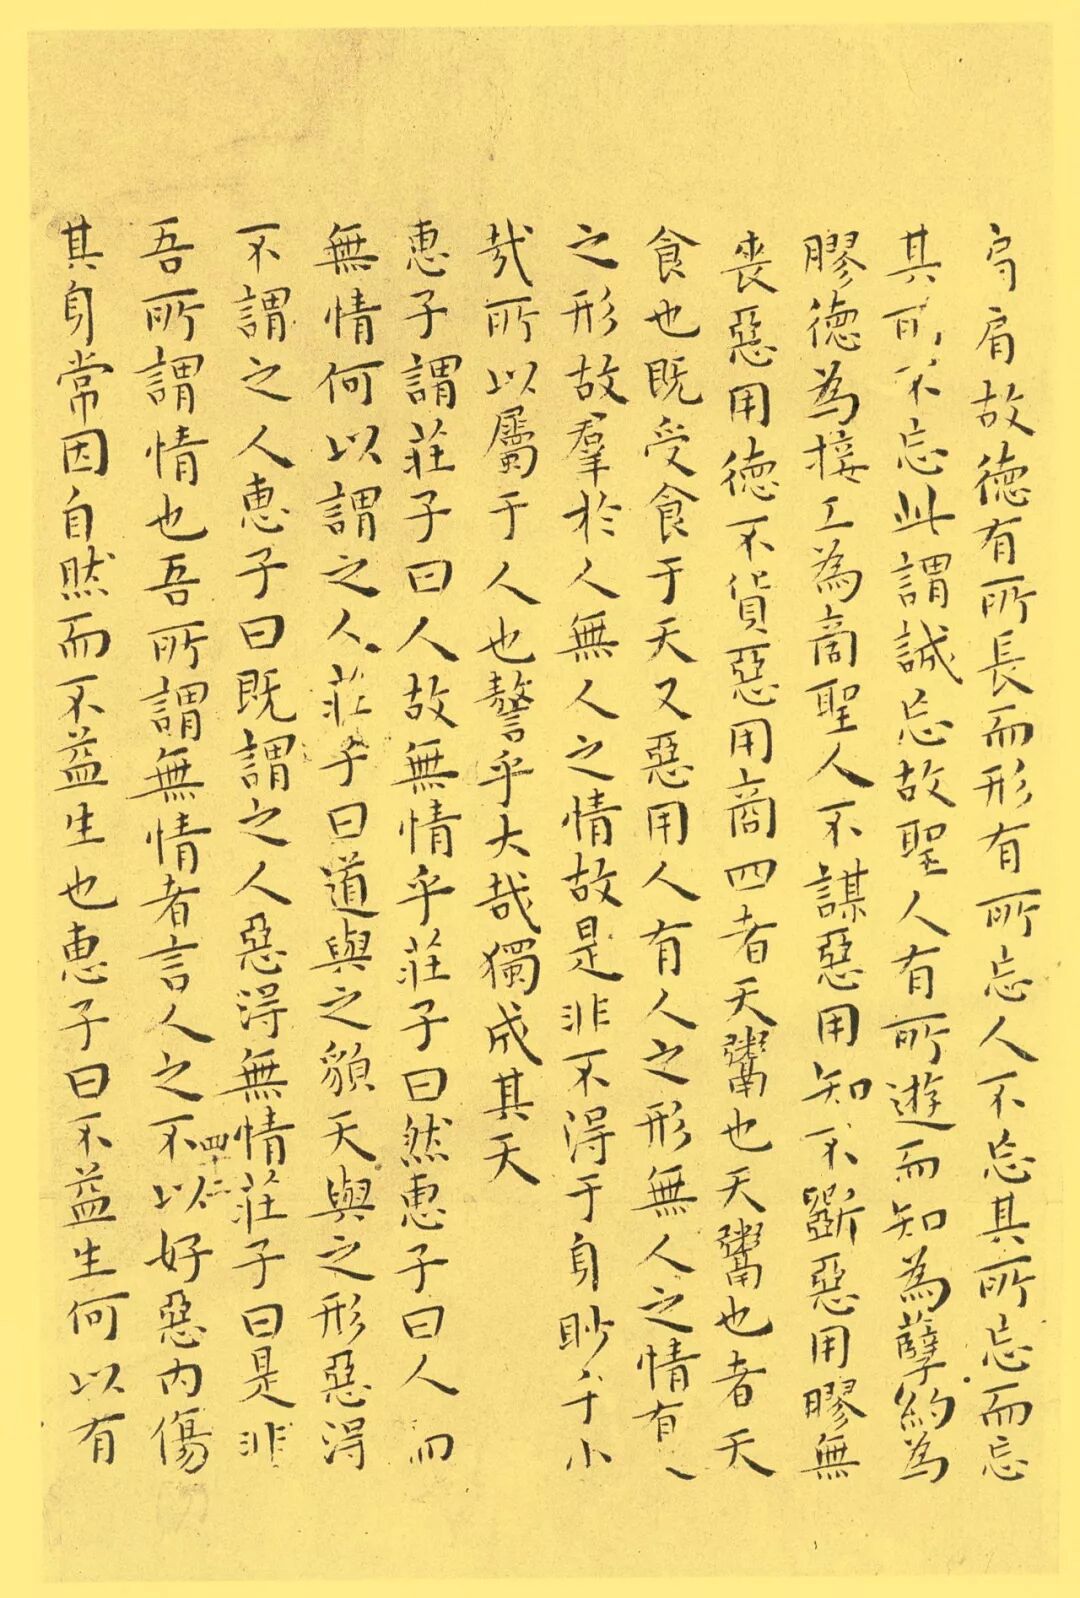 肩肩故德有所長而形有所忘人不忘其所忘而忘
其所不忘此謂誠忘故聖人有所遊而知為孽約為
膠德為接工為商聖人不謀惡用知不斵惡用膠無
喪惡用德不貨惡用商四者天鬻也天鬻也者天
食也既受食于天又惡用人有人之形無人之情有人
之形故羣於人無人之情故是非不得于身眇乎小
哉所以屬于人也警乎大哉獨成其天
惠子謂莊子曰人故無情乎莊子曰然惠子曰人而
無情何以謂之人莊子曰道與之貌天與之形惡得
不謂之人惠子曰既謂之人惡得無情莊子曰是非
吾所謂情也吾所謂無情者言人之不以好惡内傷
其身常因自然而不益生也惠子曰不益生何以有
四十二